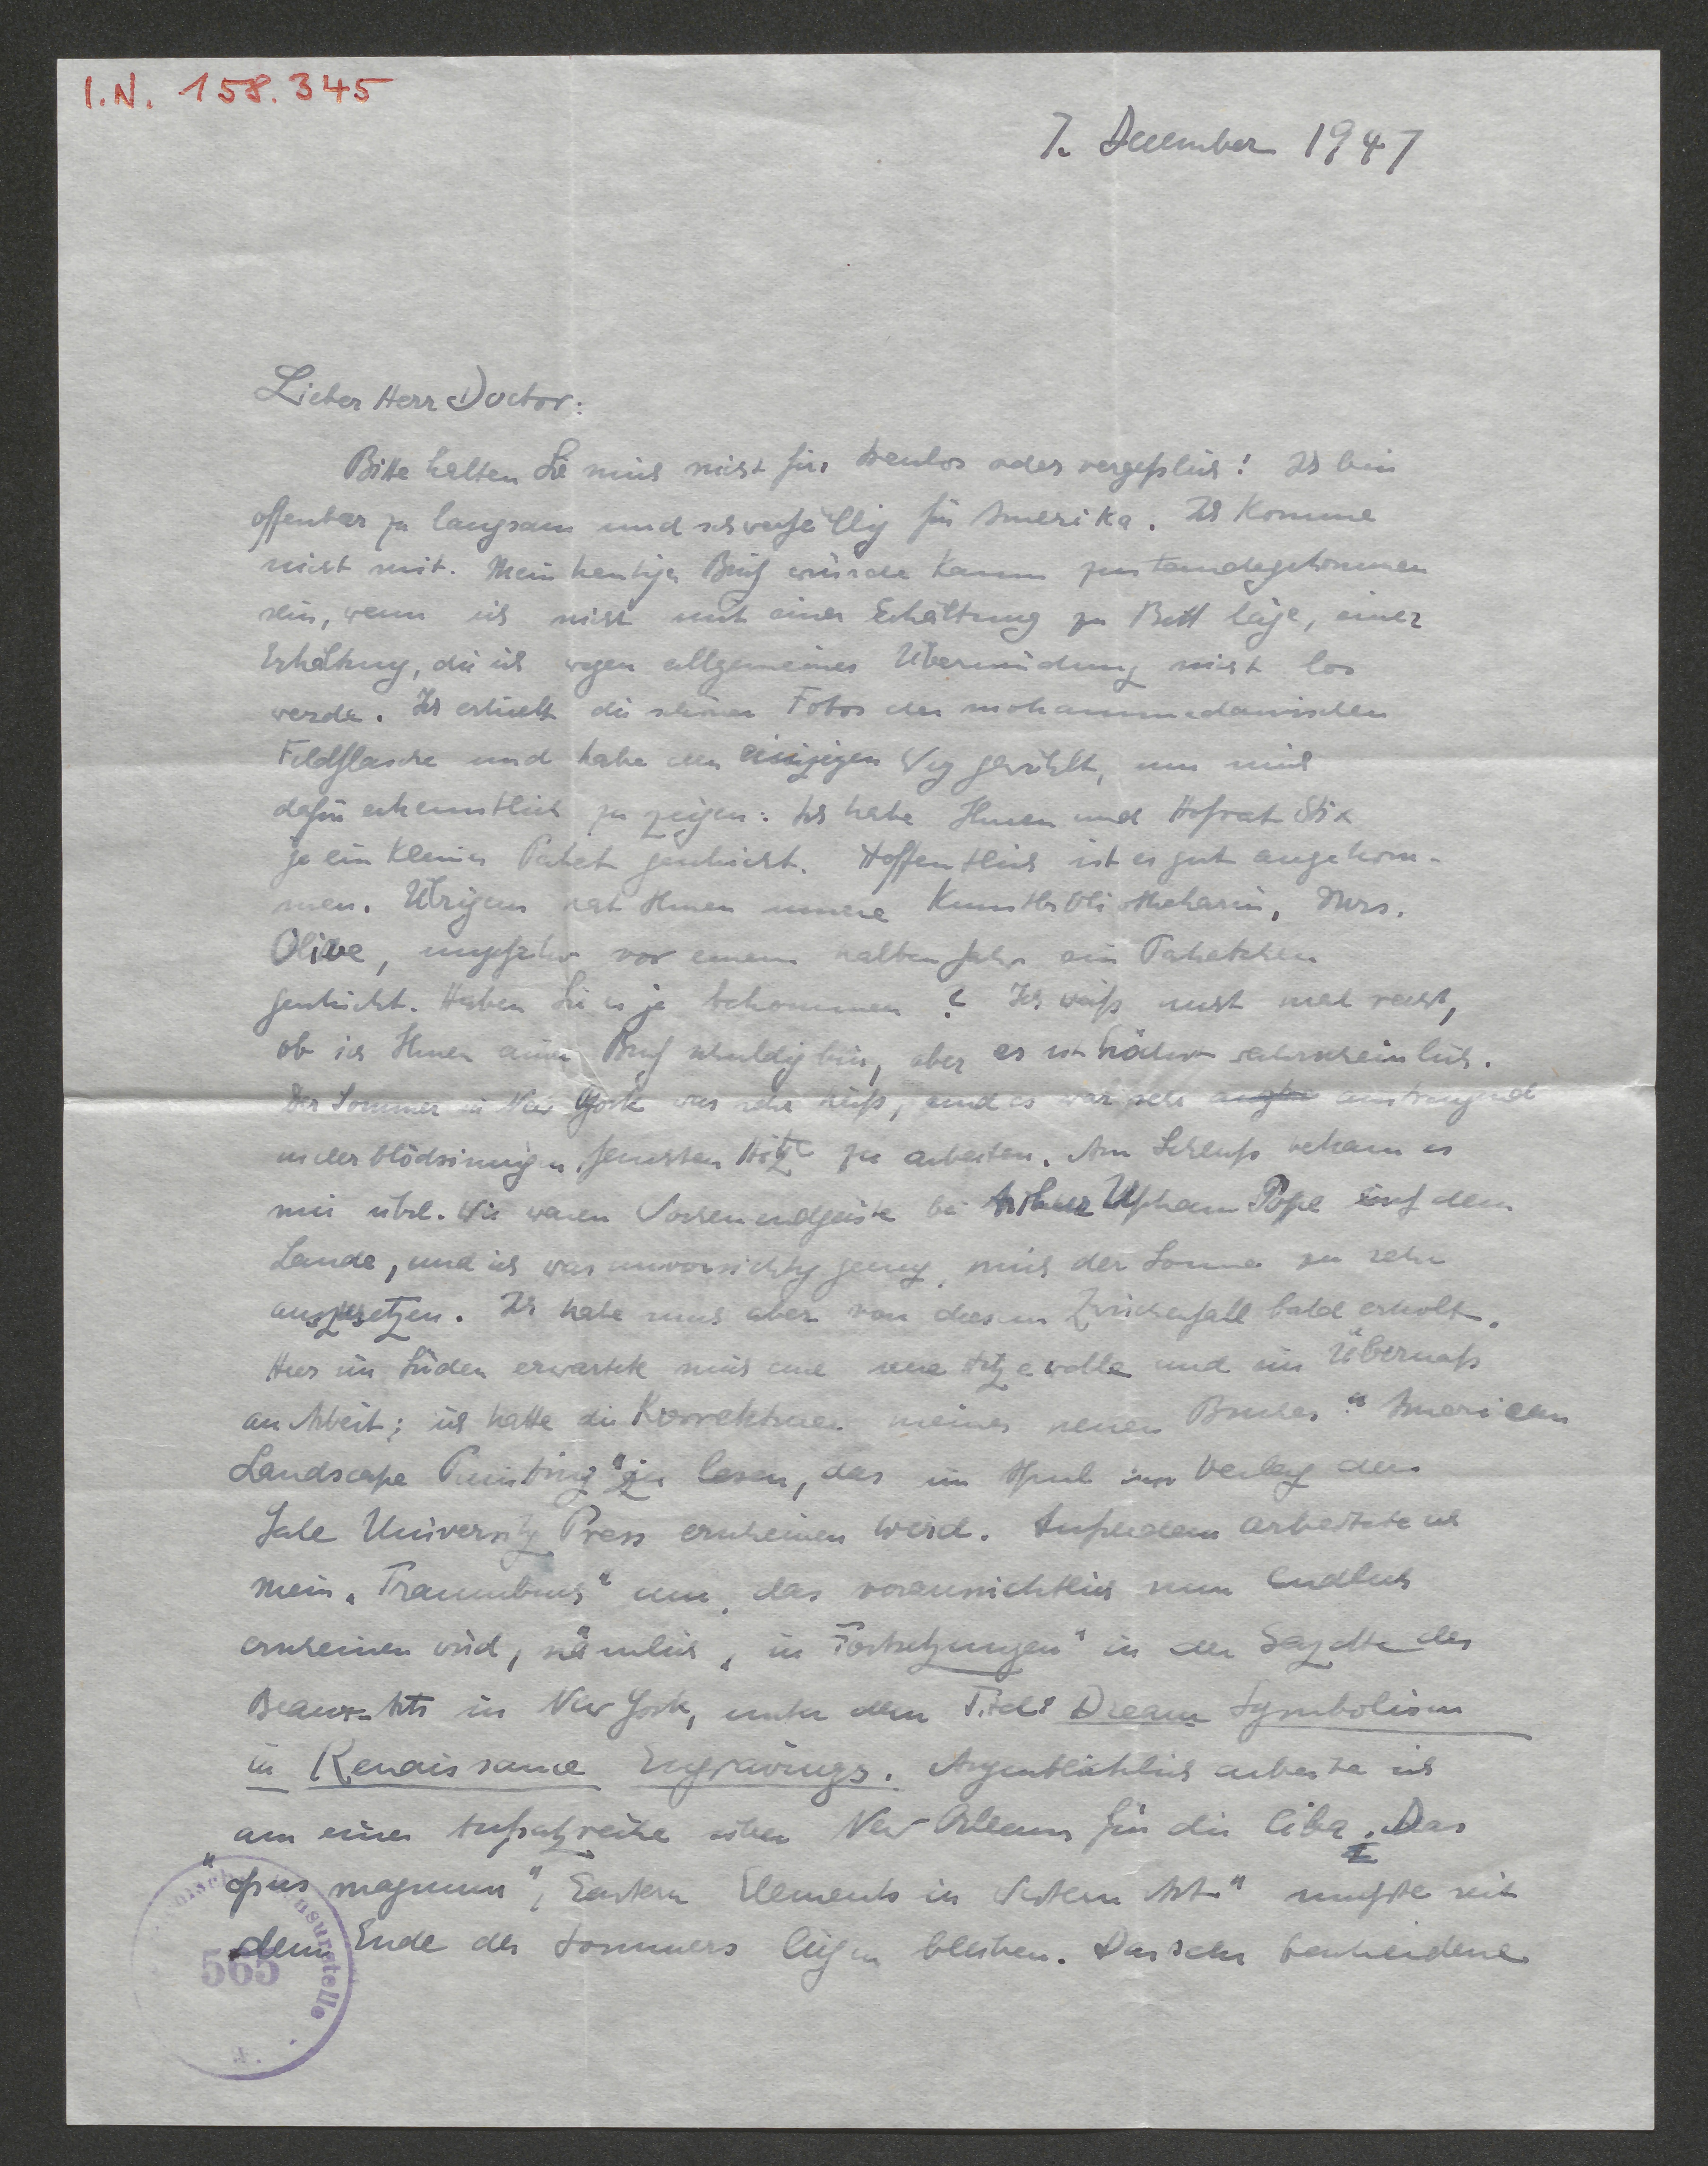 I.N. 158.345
7. December 1947
Lieber Herr Doctor:
Bitte halten Sie mich nicht für treulos oder vergeßlich! Ich bin
offenbar zu langsam und schwerfällig für Amerika. Ich komme
nicht mit. Mein heutiger Brief würde kaum zustandegekommen
sein, wenn ich nicht mit einer Erkältung zu Bett läge, einer
Erkältung, die ich wegen allgemeiner Übermüdung nicht los
werde. Ich erhielt die schönen Fotos der mohammedanischen
Feldflasche und habe den einzigen Weg gewählt, um mich
dafür erkenntlich zu zeigen: Ich habe Ihnen und Hofrat Stix
je ein kleines Paket geschickt. Hoffentlich ist es gut angekom-
men. Übrigens hat Ihnen unsere Kunstbibliothekarin, Mrs.
Olive, ungefähr vor einem halben Jahr ein Paketchen
geschickt. Haben Sie es je bekommen? Ich weiß nicht mal recht,
ob ich Ihnen einen Brief schuldig bin, aber es ist höchst wahrscheinlich.
Der Sommer in New York war sehr heiß, und es war sehr anstrengend
in der blödsinnigen feuchten Hitze zu arbeiten. Am Schluß bekam es
mir übel. Wir waren Wochenendgäste bei Arthur Upham Pope auf dem
Lande, und ich war unvorsichtig genug, mich der Sonne zu sehr
auszusetzen. Ich habe mich aber von diesem Zwischenfall bald erholt.
Hier im Süden erwartete mich eine neue Hitzewelle und ein Übermaß
an Arbeit; ich hatte die Korrekturen meines neuen Buches "American
Landscape Painting" zu lesen, das im April im Verlag der
Yale University Press erscheinen wird. Außerdem arbeitete ich
mein "Traumbuch" um, das voraussichtlich nun endlich
erscheinen wird, nämlich "in Fortsetzungen" in der Gazette des
Beaux-Arts in New York, unter dem Titel: Dream Symbolism
in Renaissance Engravings. Augenblicklich arbeite ich
an einer Aufsatzreihe über New Orleans für die Ciba. Das
"opus magnum", "Eastern Elements in Western Art" mußte seit
dem Ende des Sommers liegen bleiben. Der sehr bescheidene
565